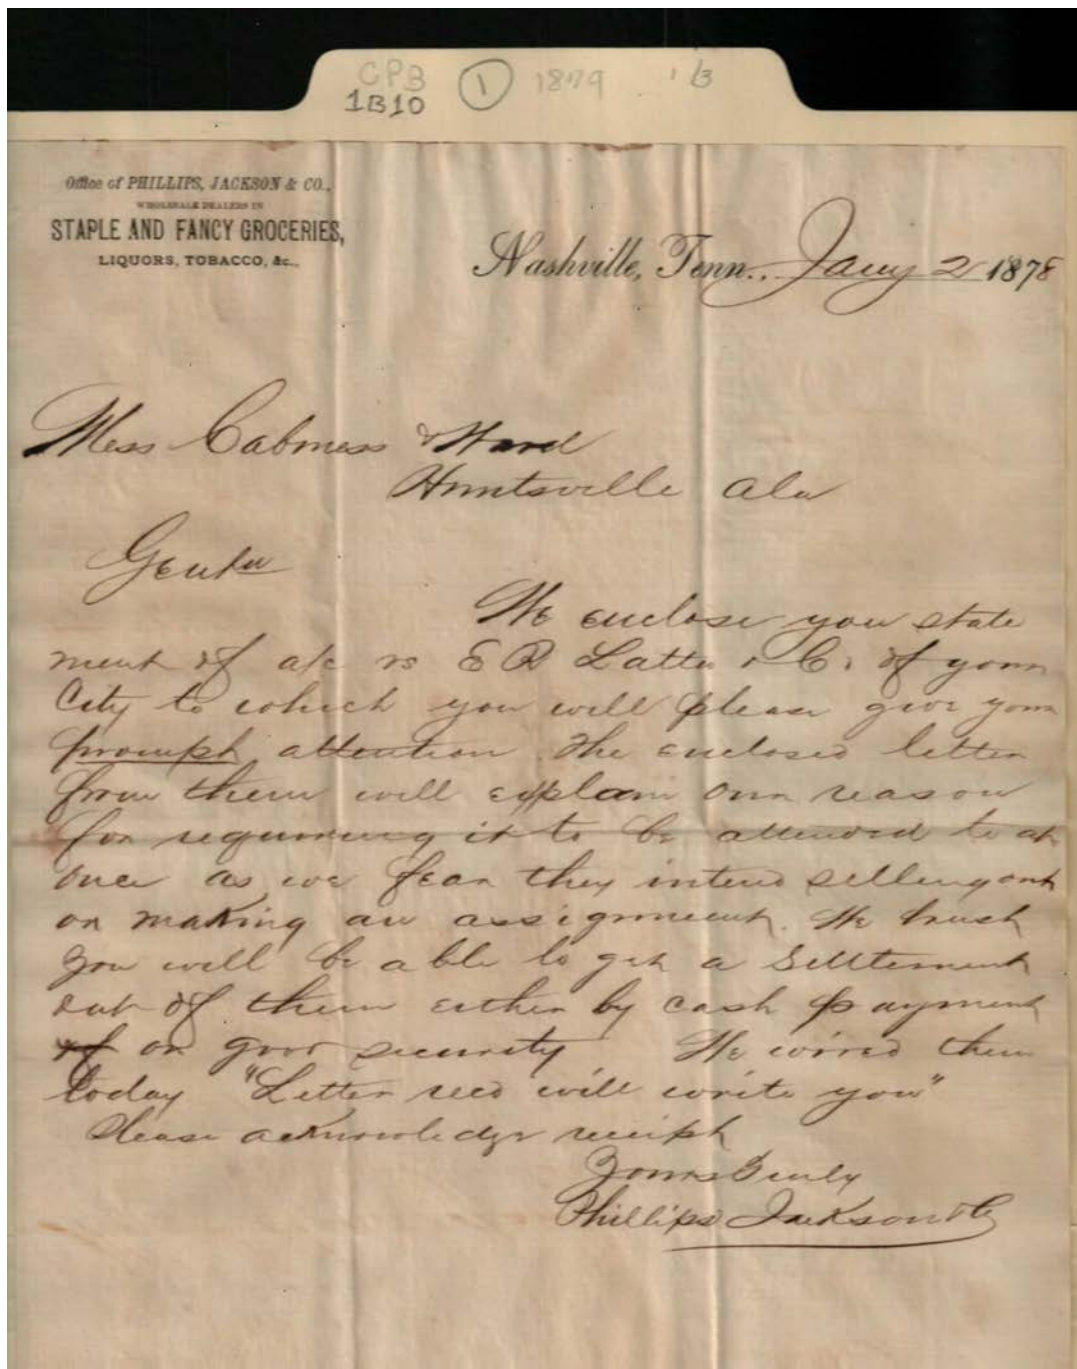 CPB
1B10
1
1879
1/3
Office of PHILLIPS, JACKSON & CO.,
WHOLESALE DEALERS IN
STAPLE AND FANCY GROCERIES,
LIQUORS, TOBACCO, &c.,
Nashville, Tenn., Jany 2 1878
Mess Cabness & Ward
Huntsville Ala
We enclose you state
ment of a/c vs E R Latta & C. of your
City to which you will please give your
prompt attention. The enclosed letter
from them will explain our reason
for requiring it to be attended to at
once as we fear they intend selling out
or making an assignment. We trust
you will be able to get a Settlement
out of them either by cash payment
of or good security We wired them
today "Letter recd will write you"
Please acknowledge receipt
Yours Truly
Phillips Jackson & Co